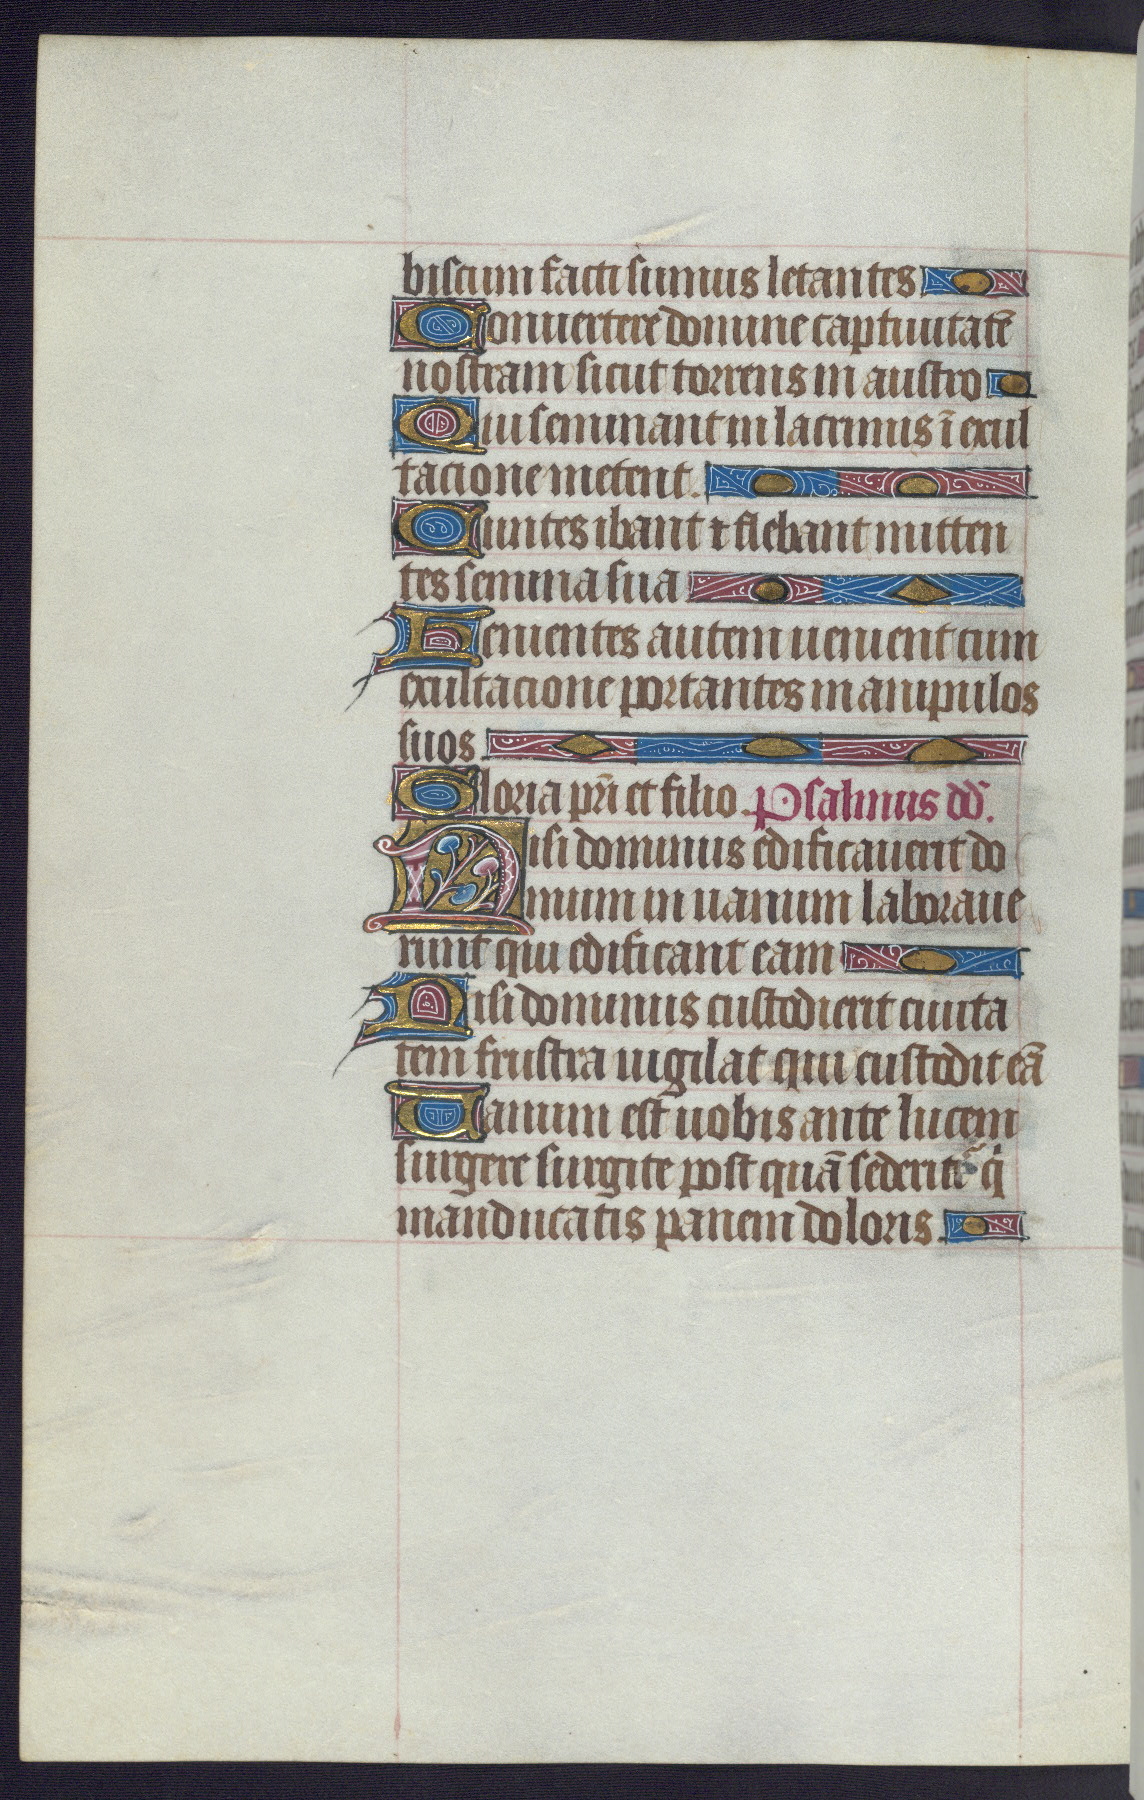 biscum facti sumus letantes
Conuertere domine captiuitatē
nostram sicut torrens in austro
Qui seminant in lacrimis ī exul
tacione metent.
Euntes ibant ⁊ flebant mitten
tes semina sua
Uenientes autem uenient cum
exultacione portantes manipulos
suos
Gloria pr̄i et filio. Psalmus dd̄.
Nisi dominus edificauerit do
mum in uanum laboraue
runt qui edificant eam
Nisi dominus custodierit ciuita
tem frustra uigilat qui custodit eā
Uanum est uobis ante lucem
surgere surgite post quā sederitis q̇
manducatis panem doloris.